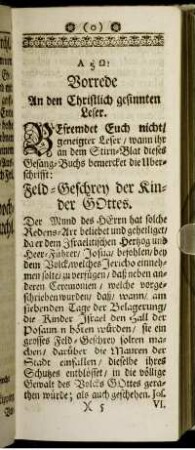 (0)
A & Ω:
Vorrede
An den Christlich gesinnten
Leser.
BEfremdet Euch nicht/
geneigter Leser/ wann ihr
an dem Stirn-Blat dieses
Gesang-Buchs bemercket die Uber-
schrifft:
Feld-Geschrey der Kin-
der GOttes.
Der Mund des HErrn hat solche
Redens-Art beliebet und geheiliget/
da er dem Israelitischen Hertzog und
Heer-Führer/ Josua/ befohlen/ bey
dem Volck, welches Jericho einneh-
men solte/ zu verfügen/ daß neben an-
deren Ceremonien/ welche vorge-
schrieben wurden/ daß/ wann/ am
siebenden Tage der Belagerung/
die Kinder Israel den Hall der
Posaun n hören würden/ sie ein
grosses Feld-Geschrey solten ma-
chen/ darüber die Mauren der
Stadt einfallen/ dieselbe ihres
Schutzes entblösset/ in die völlige
Gewalt des Volcks GOttes gera-
then würde; als auch geschehen. Jos.
X 5 VI.